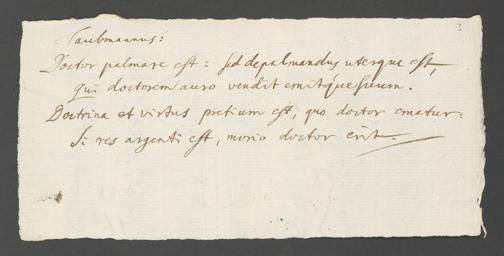 3
Taubmannus:
Doctor palmare est: sed depalmandus uterque est,
Qui doctorem auro vendit emitque suum.
Doctrina et virtus pretium est, quo doctor ematur:
Si res argenti est, morio doctor erit.